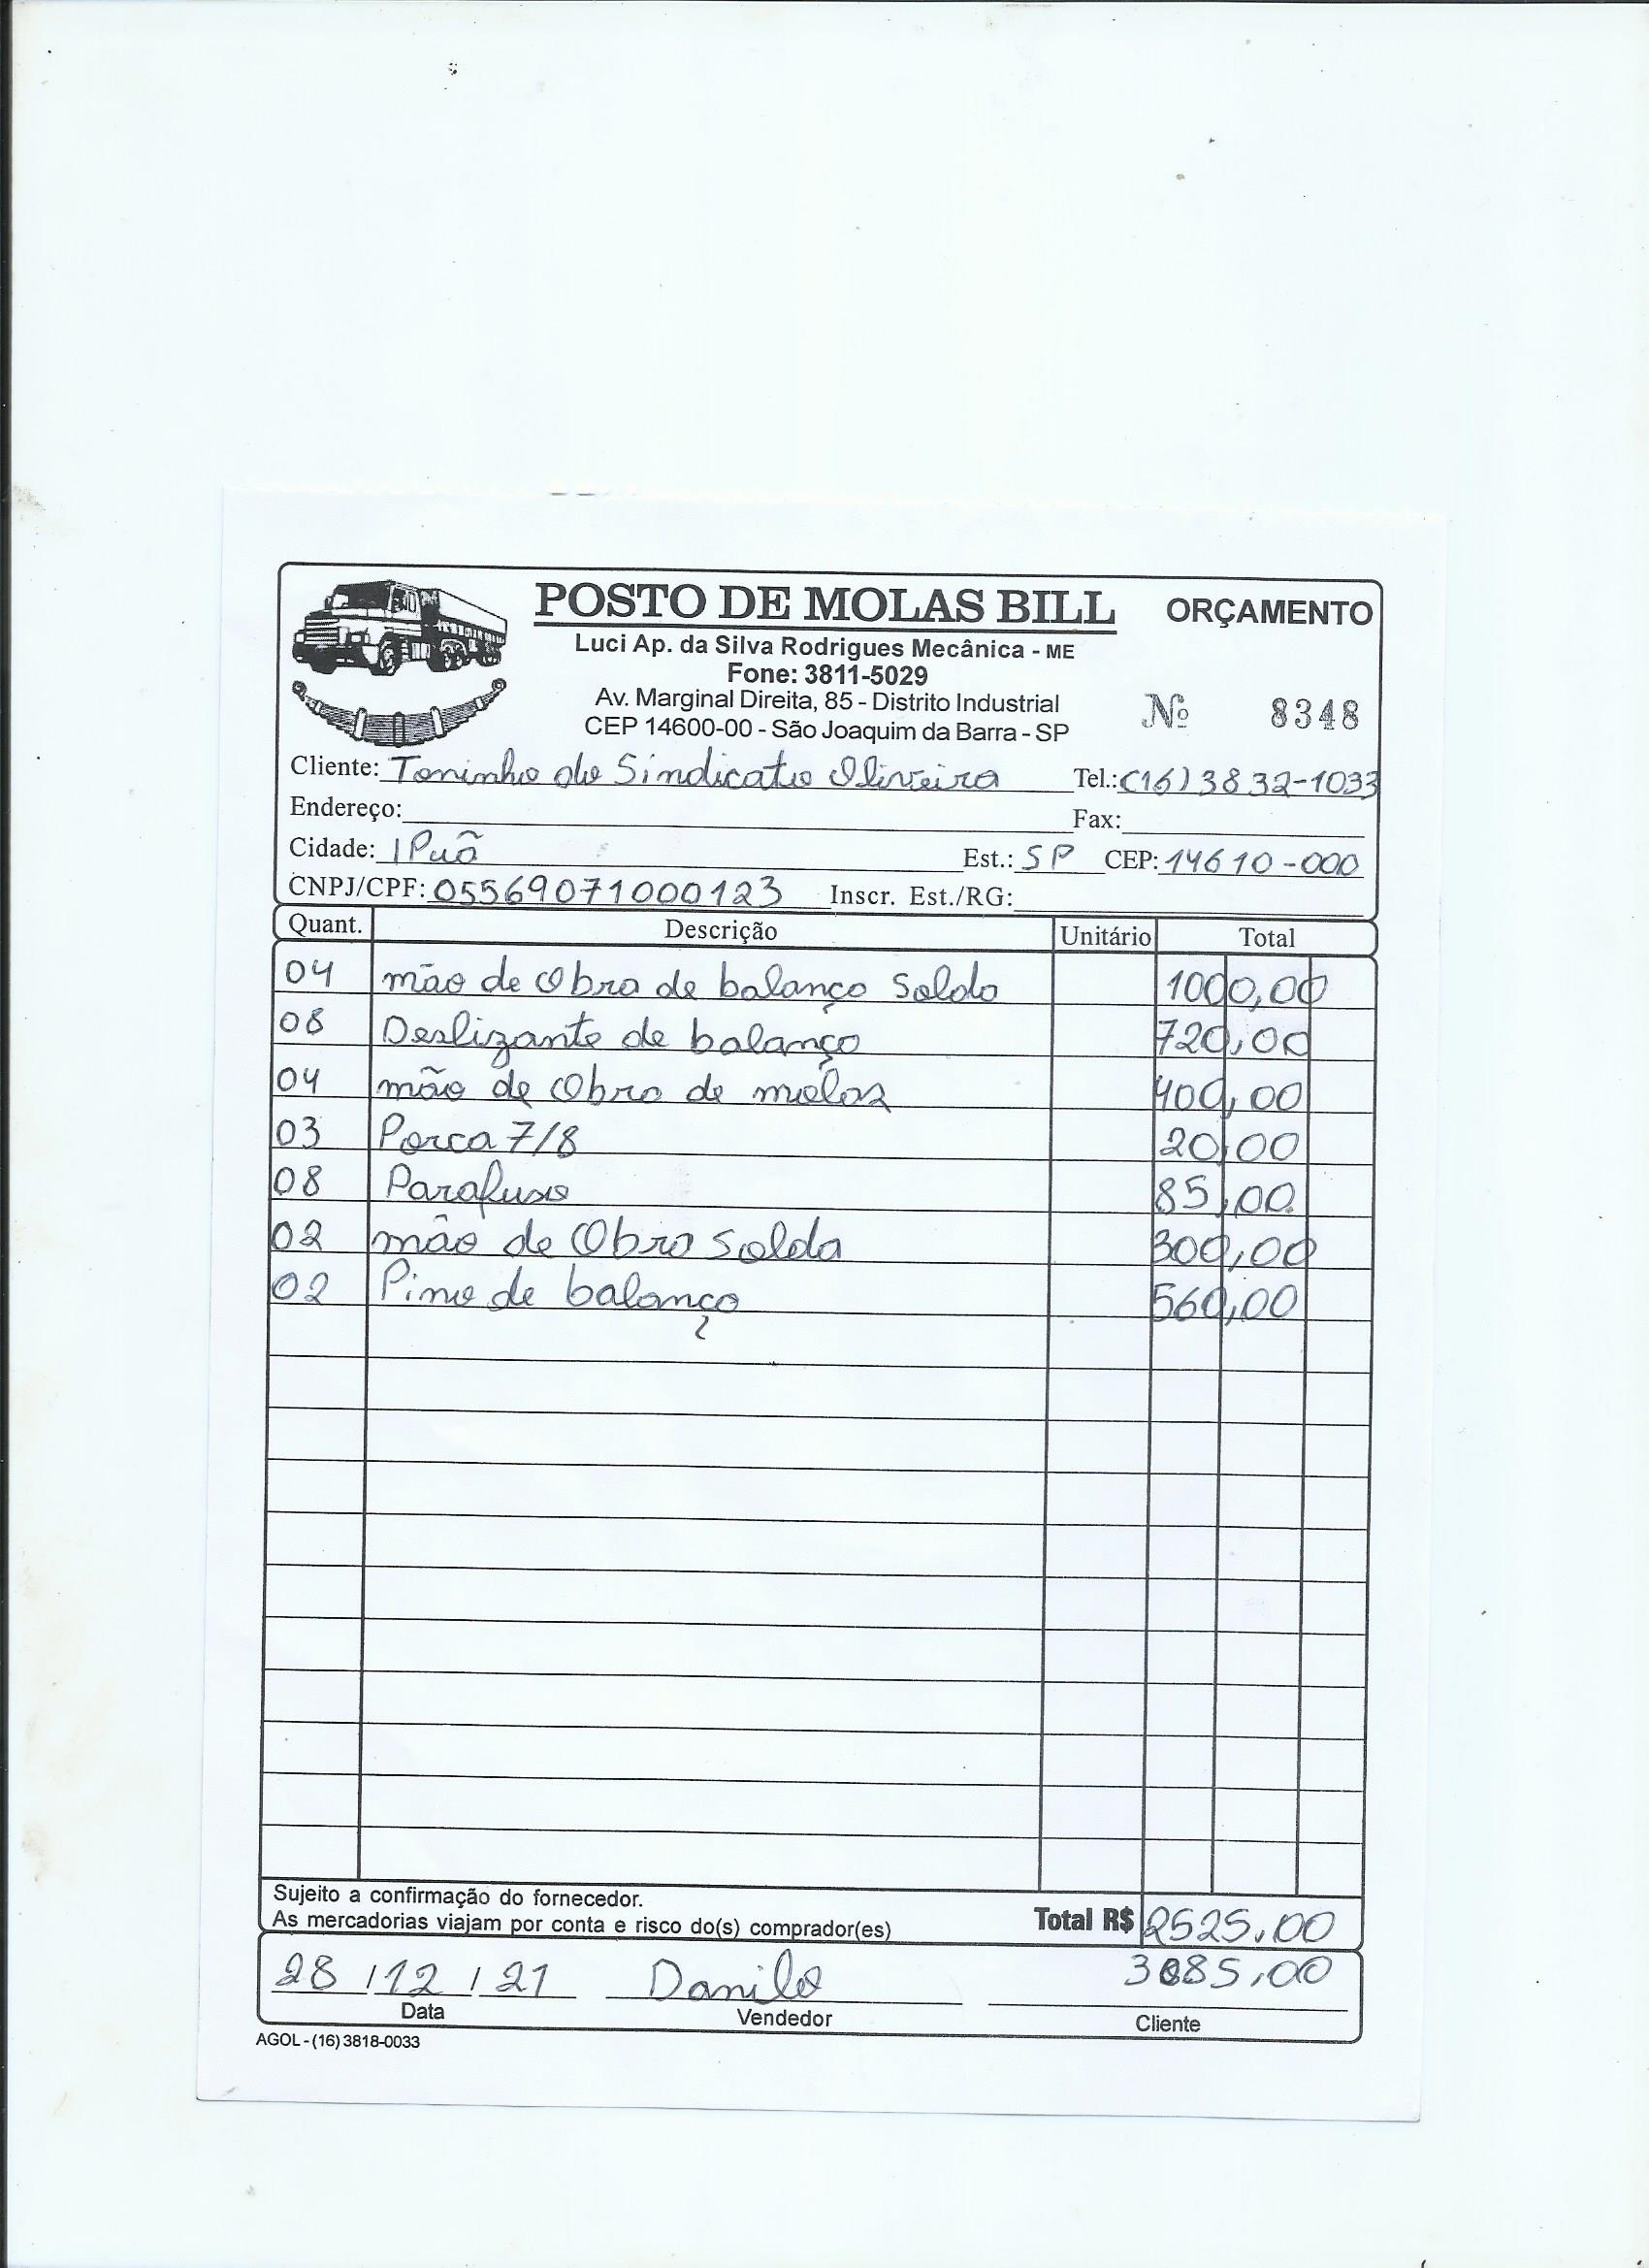 POSTO DE MOLAS BILL ORÇAMENTO
Luci Ap. da Silva Rodrigues Mecânica - ME
Fone: 3811-5029
Av. Marginal Direita, 85 - Distrito Industrial
CEP 14600-00 - São Joaquim da Barra - SP
Nº 8348
Cliente: Toninho do Sindicato Oliveira Tel.: (16) 3832-1033
Endereço: Fax:
Cidade: IPuã Est.: SP CEP: 14610-000
CNPJ/CPF: 05569071000123 Inscr. Est./RG:
Quant. Descrição Unitário Total
04 mão de Obra de balanço Solda 1000,00
08 Deslizante de balanço 720,00
04 mão de Obra de molas 400,00
03 Porca 7/8 20,00
08 Parafuso 85,00
02 mão de Obra Solda 300,00
02 Pino de balanço 560,00
Sujeito a confirmação do fornecedor.
As mercadorias viajam por conta e risco do(s) comprador(es)
Total R$ 2525,00
28/12/21 Danilo 3085,00
Data Vendedor Cliente
AGOL - (16) 3818-0033